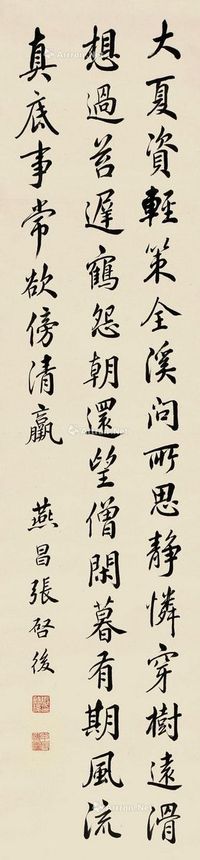 大夏資輕策全溪問所思靜憐穿樹遠滑
想過苔遲鶴怨朝還望僧閑暮有期風流
真底事常欲傍清羸
燕昌張啓後